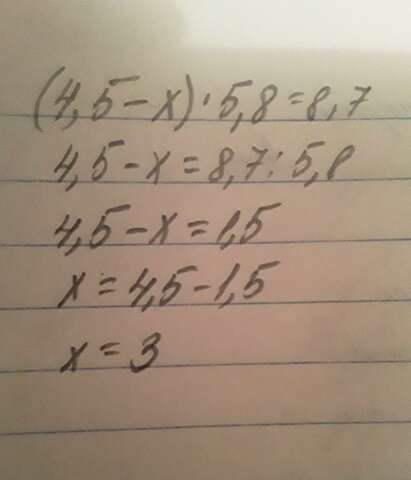 (4,5-x)·5,8=8,7
4,5-x=8,7:5,8
4,5-x=1,5
x=4,5-1,5
x=3